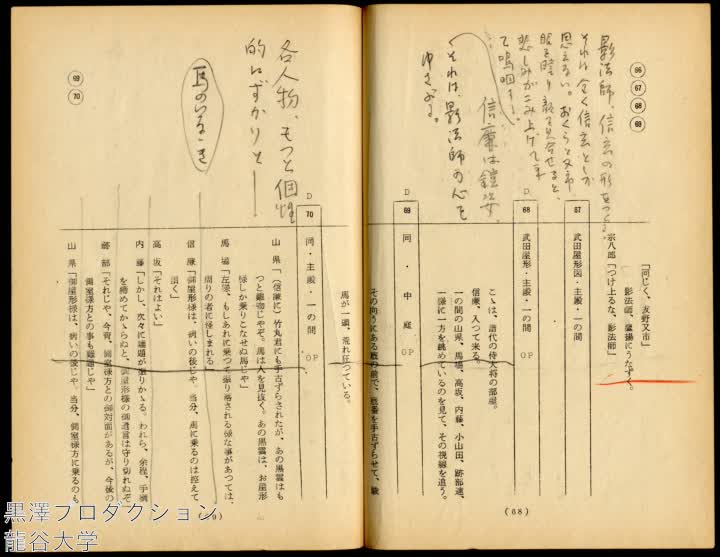 影法師、信玄の形をつくる。
それは全く信玄としか
思えない。おくらと又市
眼を瞠り顔を見合せると、
悲しみがこみ上げて来
て嗚咽す――。
信廉は鎧姿。
それは、影法師の心を
ゆさぶる。
66
67
68
69
「同じく、友野又市」
影法師、鷹揚にうなずく。
宗八郎「つけ上るな、影法師」
67
武田屋形図・主殿・一の間
D
68
武田屋形・主殿・一の間
OP
こゝは、譜代の侍大将の部屋。
信廉、入つて来る。
一の間の山県、馬場、高坂、内藤、小山田、跡部達、
一様に一方を眺めているのを見て、その視線を追う。
D
69
同・中庭
OP
その向うにある厩の前で、厩番を手古ずらせて、駿
(68)
馬が一頭、荒れ狂つている。
各人物、もつと個性
的にずかりと――
馬のいななき
69
70
D
70
同・主殿・一の間
OP
山県「(信廉に)竹丸君にも手古ずらされたが、あの黒雲はも
つと難物じやぞ。馬は人を見抜く。あの黒雲は、お屋形
様しか乗りこなせぬ馬じや」
馬場「左様、もしあれに乗つて振り落される様な事があつては、
周りの者に怪しまれる」
信廉「御屋形様は、病いの後じや。当分、馬に乗るのは控えて
頂く」
高坂「それはよい」
内藤「しかし、次々に難題が振りかゝる。われら、余程、手綱
を締めてかゝらぬと、御屋形様の御遺言は守り切れぬぞ」
跡部「それじや、今宵、側室様方との御対面があるが、今後の
側室様方との事も難題じや」
山県「御屋形様は、病いの後じや。当分、側室様方に乗るのも
黒澤プロダクション
龍谷大学